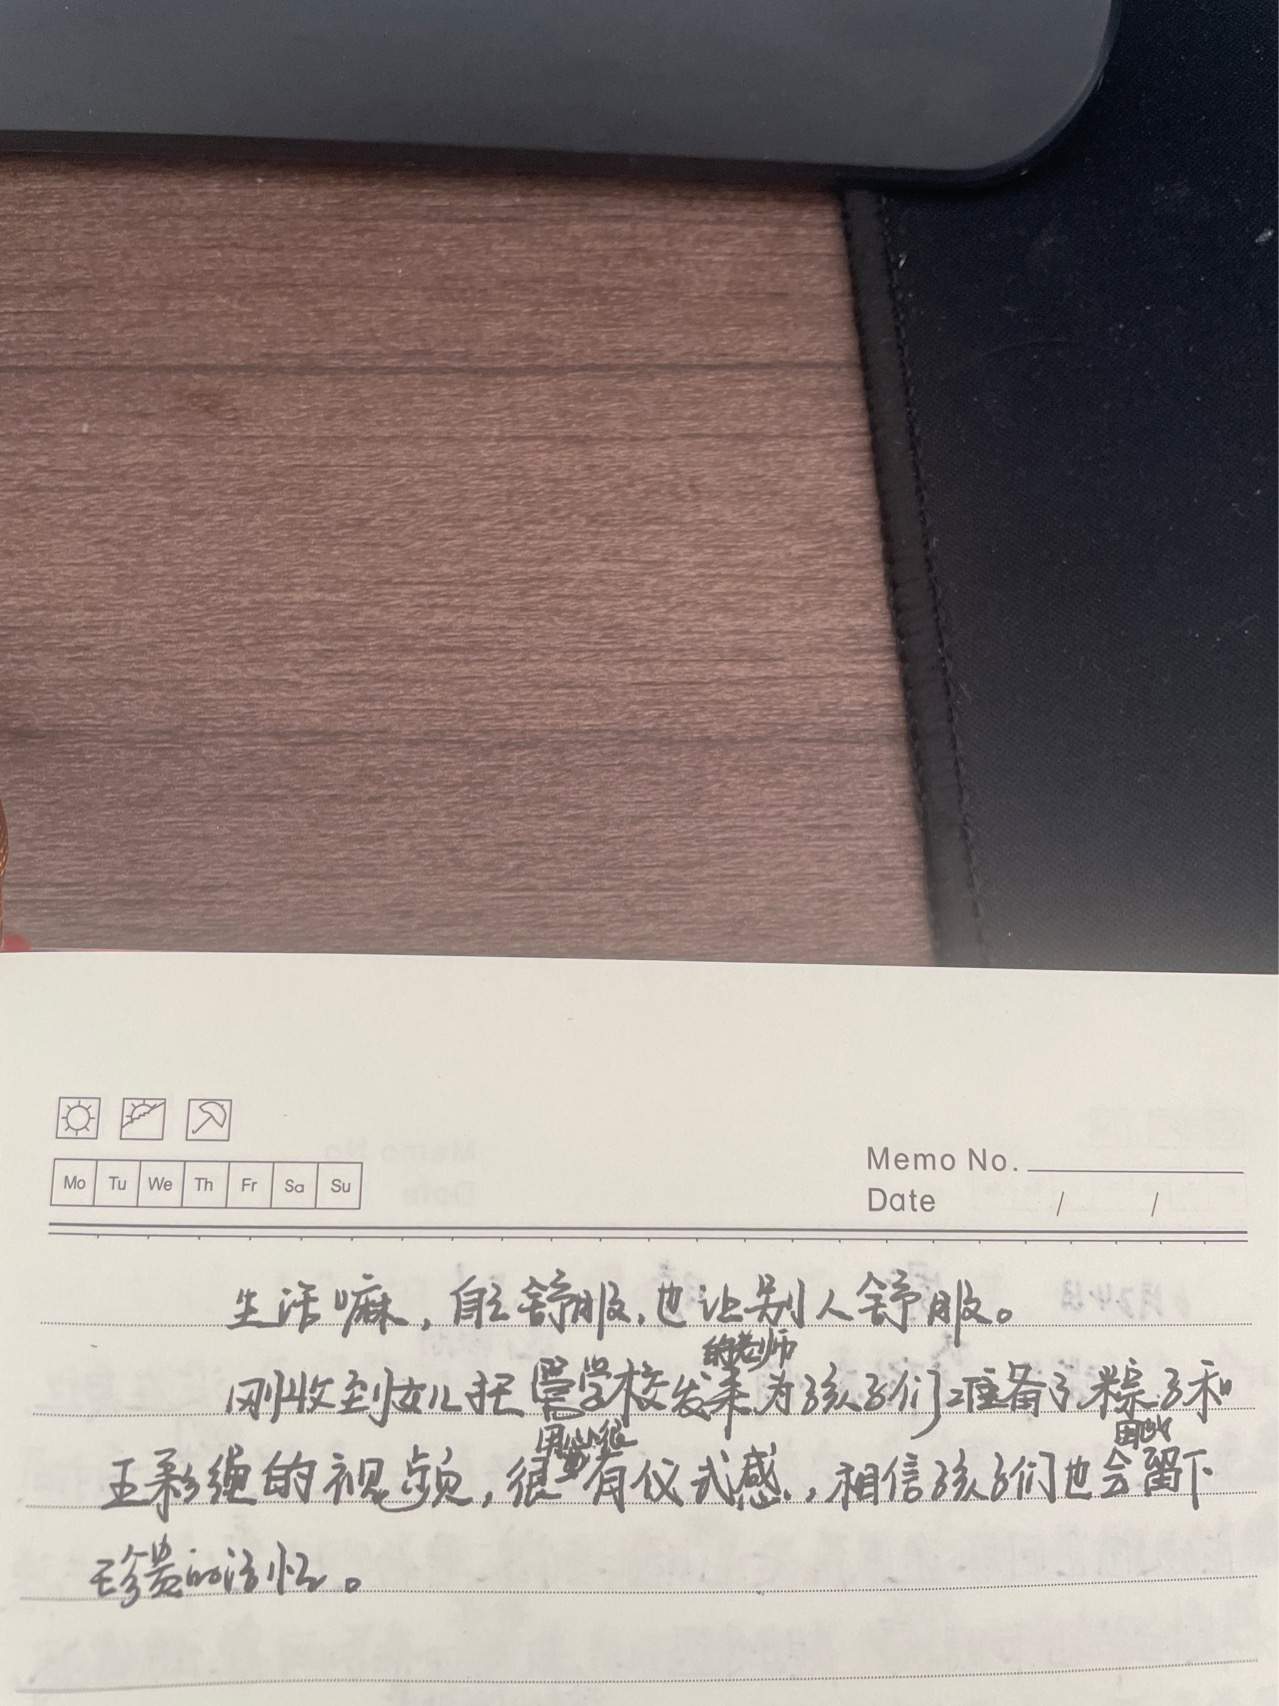 Mo Tu We Th Fr Sa Su
Memo No.
Date / /
生活嘛，自己舒服，也让别人舒服。
刚收到女儿托管学校发来的老师为孩子们准备了粽子和
五彩绳的视频，很用心很有仪式感，相信孩子们也会因此留下
珍贵的记忆。